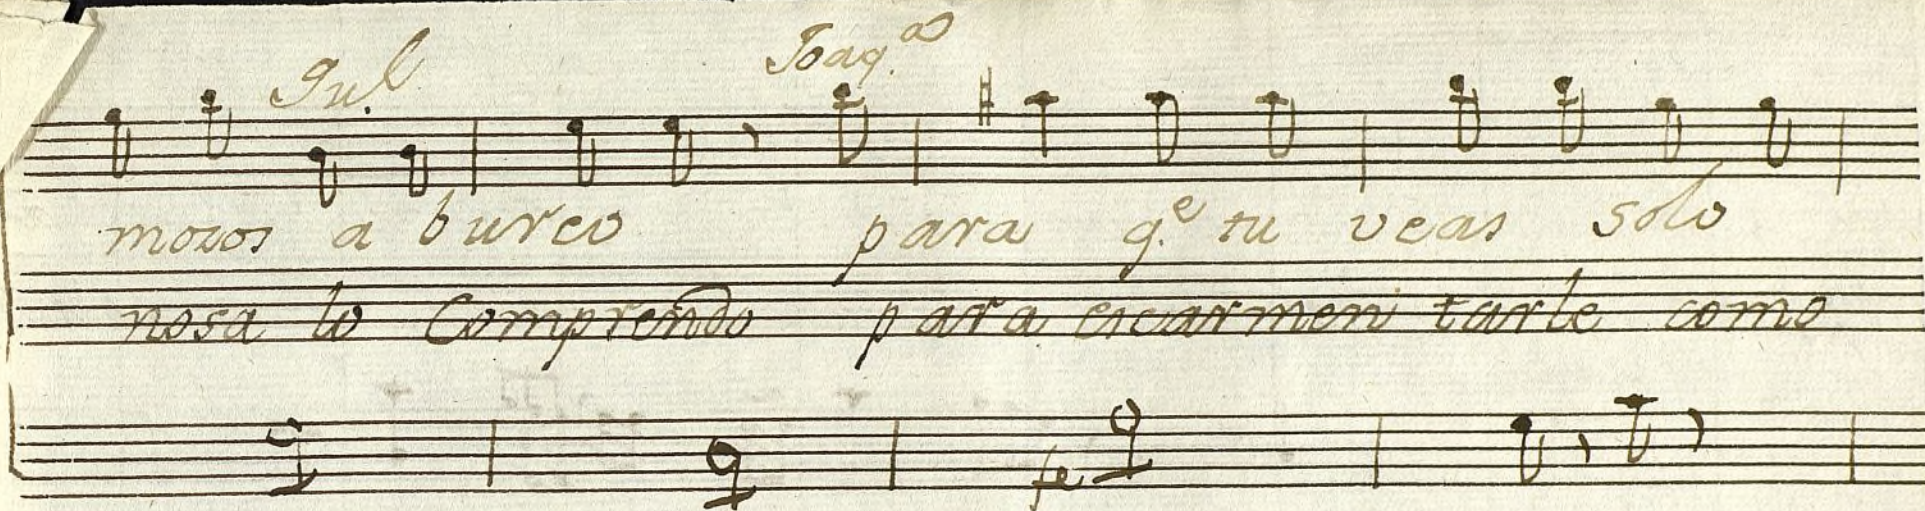 Jul Joaq.a
mozos a bureo para q.e tu veas solo
nosa lo Comprendo para escarmen tarle como
fe